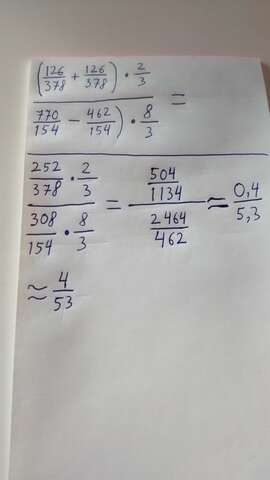 (126/378 + 126/378) · 2/3
770/154 − 462/154) · 8/3 =
252/378 · 2/3
308/154 · 8/3 = 504/1134 / 2464/462 ≈ 0,4/5,3
≈ 4/53